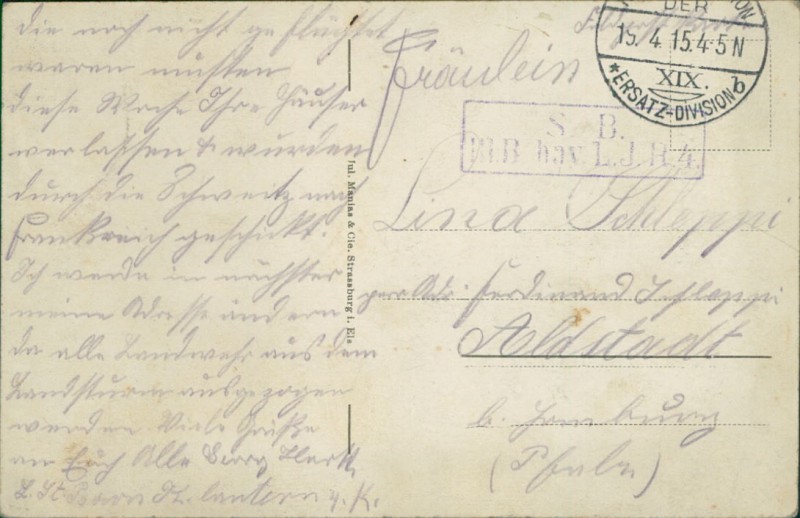 die noch nicht geflüchtet
waren mußten
diese Woche Ihre Häuser
verlassen & wurden
durch die Schweitz nach
Frankreich geschickt.
Ich werde im nächster
meine Adresse ändern
da alle Landwehr aus dem
Landsturm ausgezogen
werden Viele Grüße
an Euch Alle Georg
Jul. Manias & Cie. Strassburg i. Els
DER
15.4.15.4-5N
XIX.
*ERSATZ-DIVISION b
S. B.
bay. L.J.R.4.
Fräulein
Lina Schleppi
per Adr: Ferdinand Schleppi
Altstadt
b. Homburg
(Pfalz)